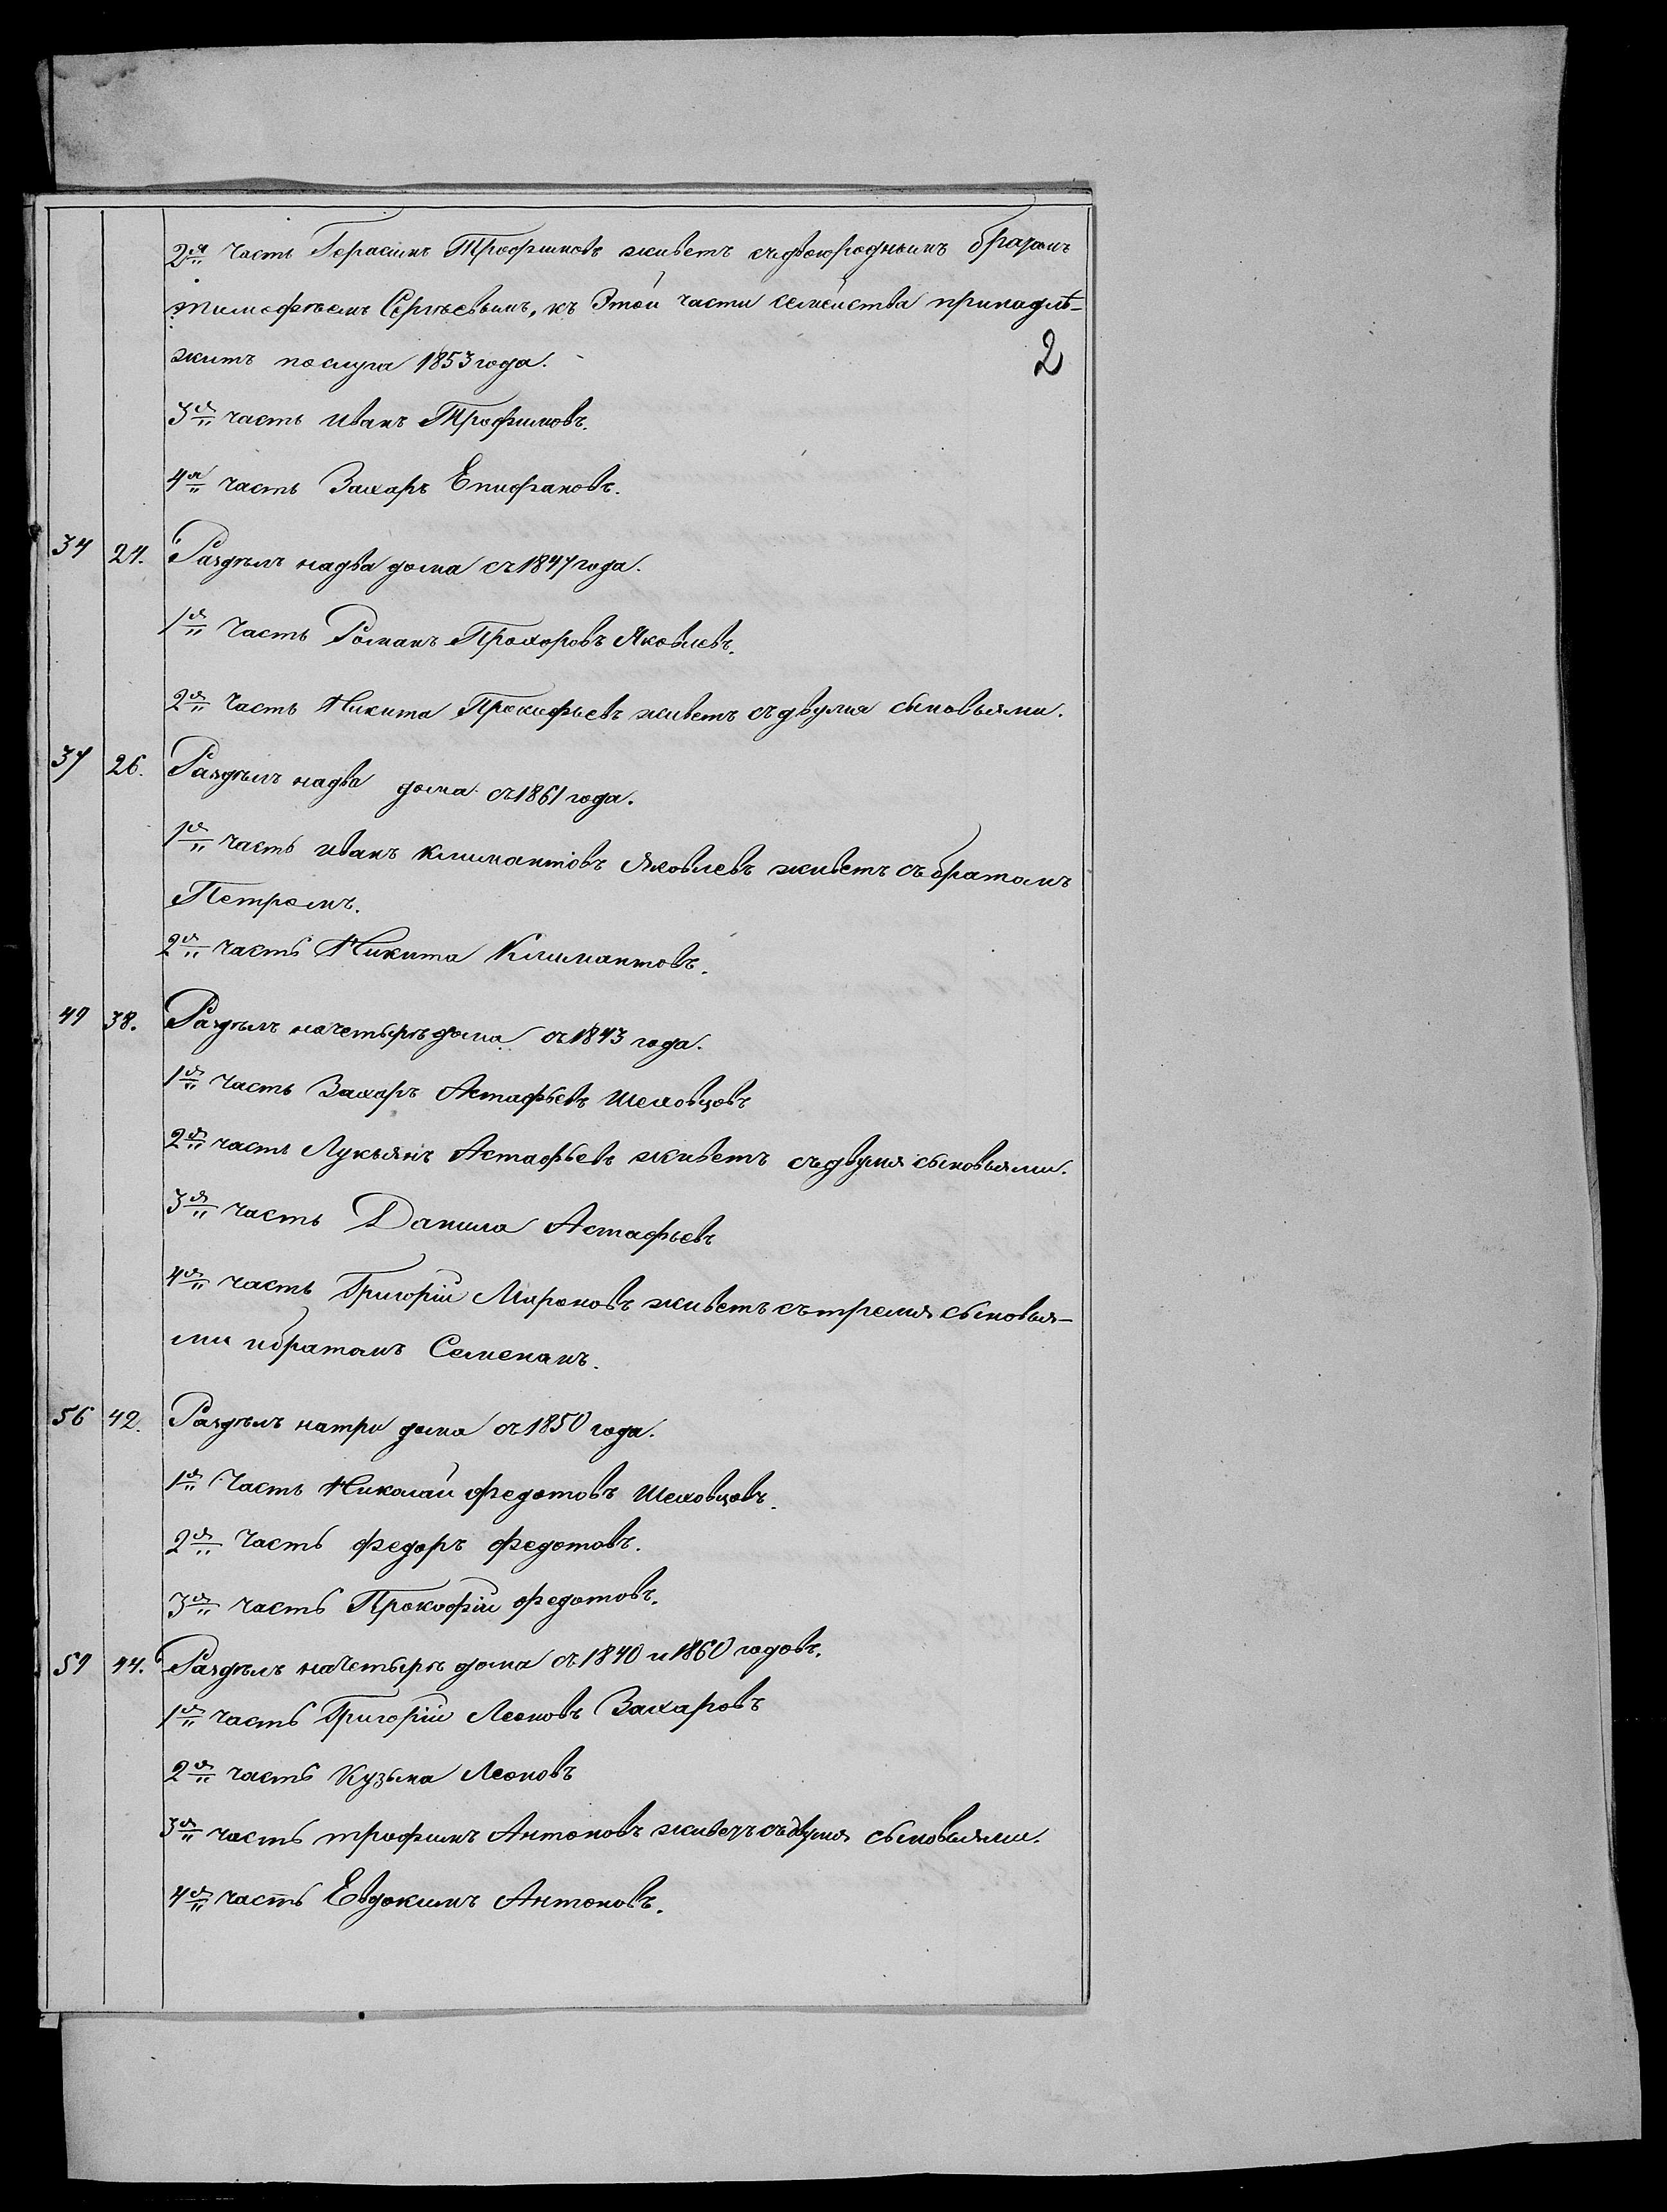 2я часть Герасимъ Трофимовъ живетъ съ двоюроднымъ братомъ
Тимофѣемъ Сергѣевымъ, къ Этой части семейства принадлѣ-
житъ послуга 1853 года.
2
3я часть Иванъ Трофимовъ.
4я часть Захаръ Епифановъ.
34 24. Раздѣлъ на два дома съ 1847 года.
1я Часть Романъ Прохоровъ Яковлевъ.
2я Часть Никита Прокофьевъ живетъ съ двумя сыновьями.
37 26. Раздѣлъ на два дома съ 1861 года.
1я часть Иванъ Климантовъ Яковлевъ живетъ съ братомъ
Петромъ.
2я часть Никита Климантовъ.
49 38. Раздѣлъ на четырѣ дома съ 1843 года.
1я Часть Захаръ Астафьевъ Шеховцовъ
2я часть Лукьянъ Астафьевъ живетъ съ двумя сыновьями.
3я часть Данила Астафьевъ
4я часть Григорій Мироновъ живетъ съ тремя сыновья-
ми и братомъ Семеномъ.
56 42. Раздѣлъ на три дома съ 1850 года.
1я Часть Николай Федотовъ Шеховцовъ.
2я Часть Федоръ Федотовъ.
3я часть Прокофій Федотовъ.
59 44. Раздѣлъ на четырѣ дома съ 1840 и 1860 годовъ.
1я часть Григорій Леоновъ Захаровъ
2я часть Кузьма Леоновъ
3я часть трофимъ Антоновъ живетъ съ двумя сыновьями.
4я часть Евдокимъ Антоновъ.